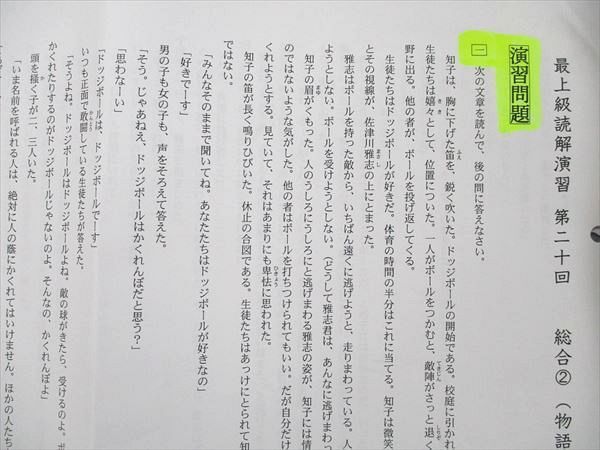 最上級読解演習 第二十回 総合②（物語
演習問題
一 次の文章を読んで、後の問に答えなさい。
知子は、胸に下げた笛を、鋭く吹いた。ドッジボールの開始である。校庭に引かれ
生徒たちは嬉々として、位置についた。一人がボールをつかむと、敵陣がさっと退く
野に出る。他の者が、ボールを投げ返してくる。
生徒たちはドッジボールが好きだ。体育の時間の半分はこれに当てる。知子は微笑
とその視線が、佐津川雅志の上にとまった。
雅志はボールを持った敵から、いちばん遠くに逃げようと、走りまわっている。人
ようとしない。ボールを受けようとしない。（どうして雅志君は、あんなに逃げまわっ
知子の眉がくもった。人のうしろにうしろにと逃げまわる雅志の姿が、知子には情
のではないような気がした。他の者はボールを打ちつけられてもいい。だが自分だけ
くれようとする。見ていて、それはあまりにも卑怯に思われた。
知子の笛が長く鳴りひびいた。休止の合図である。生徒たちはあっけにとられて知
ではない。
「みんなそのままで聞いてね。あなたたちはドッジボールが好きなの」
「好きでーす」
男の子も女の子も、声をそろえて答えた。
「そう。じゃあねえ、ドッジボールはかくれんぼだと思う？」
「思わなーい」
「ドッジボールは、ドッジボールでーす」
いつも正面で敢闘している生徒たちが答えた。
「そうよね。ドッジボールはドッジボールよね。敵の球がきたら、受けるのよ。ボ
かくれたりするのがドッジボールじゃないのよ。そんなの、かくれんぼよ」
頭を掻く子が二、三人いた。
「いま名前を呼ばれる人は、絶対に人の蔭にかくれてはいけません。ほかの人たち